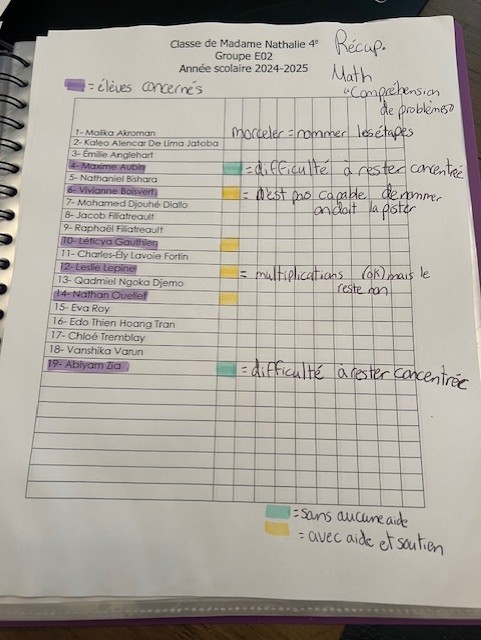 Classe de Madame Nathalie 4e
Groupe E02
Année scolaire 2024-2025
Récup.
Math
"Compréhension
de problèmes"
= élèves concernés
morceler = nommer les étapes
1- Malika Akroman
2- Kaleo Alencar De Lima Jatoba
3- Émilie Anglehart
4- Maxime Aubin = difficulté à rester concentrée
5- Nathaniel Bishara
6- Vivianne Boisvert = n'est pas capable de nommer
on doit la pister
7- Mohamed Djouhé Diallo
8- Jacob Filiatreault
9- Raphaël Filiatreault
10- Léticya Gauthier
11- Charles-Ély Lavoie Fortin
12- Leslie Lepine = multiplications (ok) mais le
reste non
13- Qadmiel Ngoka Djemo
14- Nathan Ouellet
15- Eva Roy
16- Edo Thien Hoang Tran
17- Chloé Tremblay
18- Vanshika Varun
19- Abiyam Zia = difficulté à rester concentrée
= sans aucune aide
= avec aide et soutien